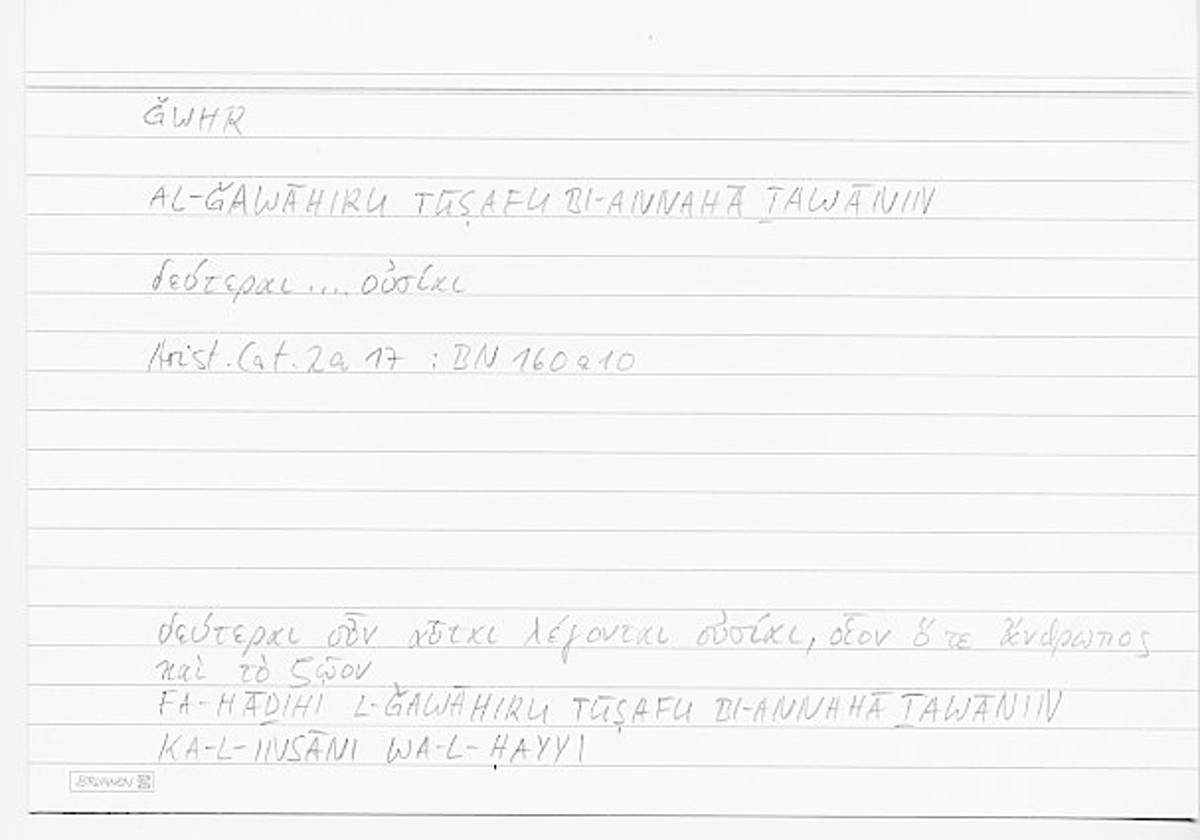 ǦWHR
AL-ǦAWĀHIRU TŪṢAFU BI-ANNAHĀ ṮAWĀNIN
δεύτεραι .... οὐσίαι
Arist. Cat. 2a 17 : BN 160a10
δεύτεραι οὖν αὗται λέγονται οὐσίαι, οἷον ὅ τε ἄνθρωπος
καὶ τὸ ζῷον
FA-HĀḎIHI L-ǦAWĀHIRU TŪṢAFU BI-ANNAHĀ ṮAWĀNIN
KA-L-INSĀNI WA-L-ḤAYYI
BRUNNEN